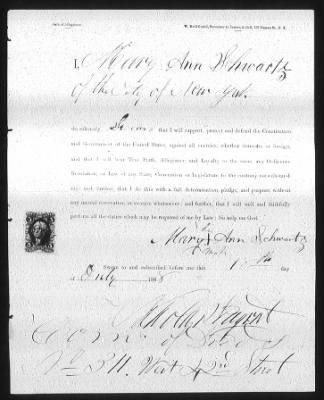 Oath of Allegiance.
I, Mary Ann Schwartz
of the City of New York
do solemnly Swear that I will support, protect and defend the Constitution
and Government of the United States, against all enemies, whether domestic or foreign,
and that I will bear True Faith, Allegiance, and Loyalty to the same, any Ordinance,
Resolution, or Law of any State, Convention or Legislature to the contrary notwithstand-
ing; and, further, that I do this with a full determination, pledge, and purpose, without
any mental reservation or evasion whatsoever; and further, that I will well and faithfully
perform all the duties which may be required of me by Law: So help me God.
Mary Ann Schwartz
Sworn to and subscribed before me this day
July 186
of
No 511 West 42nd Street